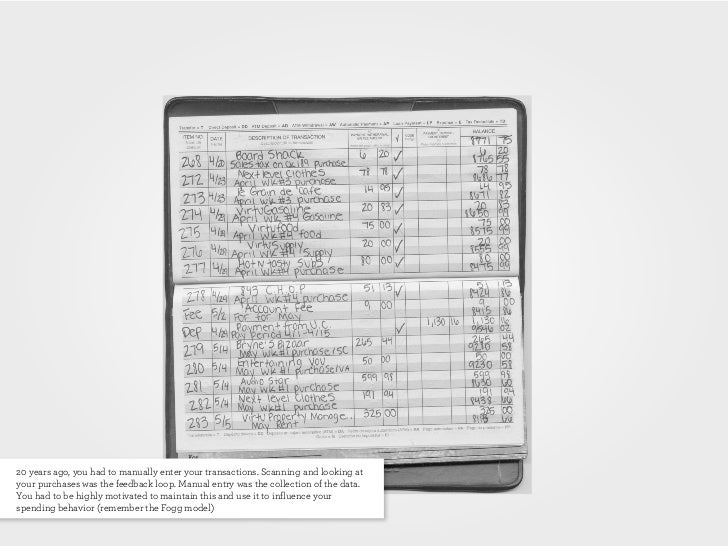 Transfer = T Direct Deposit = DD ATM Deposit = AD ATM Withdrawal = AW Automatic Payment = AP Loan Payment = LP Expense = E Tax Deductible = TD
ITEM NO. DATE DESCRIPTION OF TRANSACTION PAYMENT, WITHDRAWAL ✓ CODE BALANCE
8771 75
268 4/20 Board Shack 6 20 ✓ 6 20
Sales tax on ck 189 purchase 8765 55
272 4/23 Next level Clothes 78 78 ✓ 78 78
April WK#3 purchase 8686 77
273 4/23 le Grain de Cafe 14 95 ✓ 14 95
April WK #3 purchase 8671 82
274 4/29 VirtuGasoline 20 83 ✓ 20 83
April WK #4 Gasoline 8650 99
275 4/29 Virtufood 75 00 ✓ 75 00
April WK#4 food 8575 99
276 4/29 VirtuSupply 20 00 ✓ 20 00
April WK #4 Supply 8555 99
277 4/29 Hot N tasty Subs 80 00 ✓ 80 00
April WK#4 purchase 8475 99
278 4/29 843 C.H.O.P 51 13 ✓ 51 13
April WK#4 purchase 8424 86
Fee 5/2 Account Fee 9 00 9 00
For May 8415 86
Dep 4/29 Payment from U.C. ✓ 1,130 16 1,130 16
Pay Period 4/1-4/15 9546 02
279 5/4 Bryne's Bizaar 265 44 265 44
May WK#1 purchase/SC 9280 58
280 5/4 Entertaining You 50 00 50 00
May WK #1 purchase/VA 9230 58
281 5/4 Audio Star 599 98 599 98
May WK #1 purchase 8630 60
282 5/4 Next level Clothes 191 94 191 94
May WK#1 purchase 8438 66
283 5/5 Virtu Property Manage.. 325 00 325 00
May Rent
20 years ago, you had to manually enter your transactions. Scanning and looking at
your purchases was the feedback loop. Manual entry was the collection of the data.
You had to be highly motivated to maintain this and use it to influence your
spending behavior (remember the Fogg model)